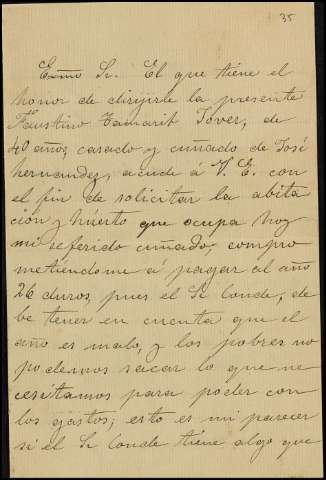 35
Exmo Sr. El que tiene el
honor de dirijirle la presente
Faustino Tamarit Tover, de
40 años, casado y cuñado de José
hernandez, acude á V. E. con
el fin de solicitar la abita
ción y huerto que ocupa hoy
mi referido cuñado, compro
metiéndome á pagar al año
26 duros, pues el Sr Conde, de
be tener en cuenta que el
año es malo, y los pobres no
podemos sacar lo que ne
cesitamos para poder con
los gastos; esto es mi parecer
si el Sr Conde tiene algo que